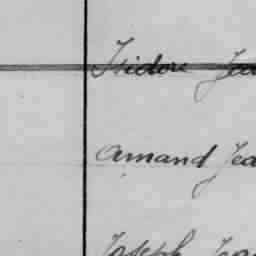 Isidore Jea
Amand Jea
Joseph Jea